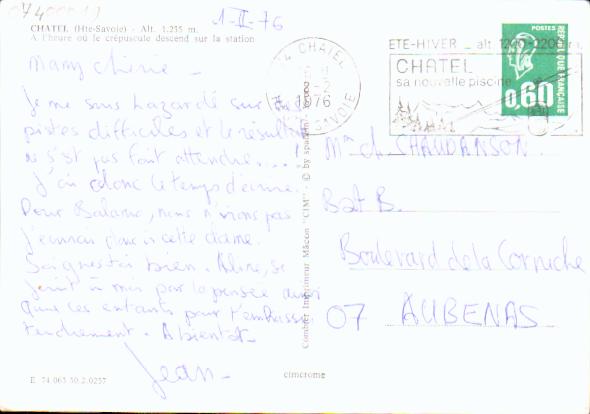 07400019
CHATEL (Hte-Savoie) - Alt. 1.235 m.
A l'heure où le crépuscule descend sur la station
1-II-76
Mamy chérie -
Je me suis hazardé sur des
pistes difficiles et le résultat
ne s'est pas fait attendre....!
J'ai donc le temps d'écrire.
Pour Balame, nous n'irons pas
j'écrirais donc à cette dame.
Soignes-toi bien. Aline, se
joint à moi par la pensée ainsi
que les enfants pour t'embrasser
tendrement. A bientôt.
Jean -
E 74 063 50 2.0257
cimcrome
Combier Imprimeur Mâcon "CIM" - © by
74 CHATEL
-2
1976
SAVOIE
ETE-HIVER _ alt. 1200-2200 m.
CHATEL
sa nouvelle piscine
POSTES
0,60
REPUBLIQUE FRANÇAISE
Mme d. CHAUDANSON
Bat B.
Boulevard de la Corniche
07 AUBENAS